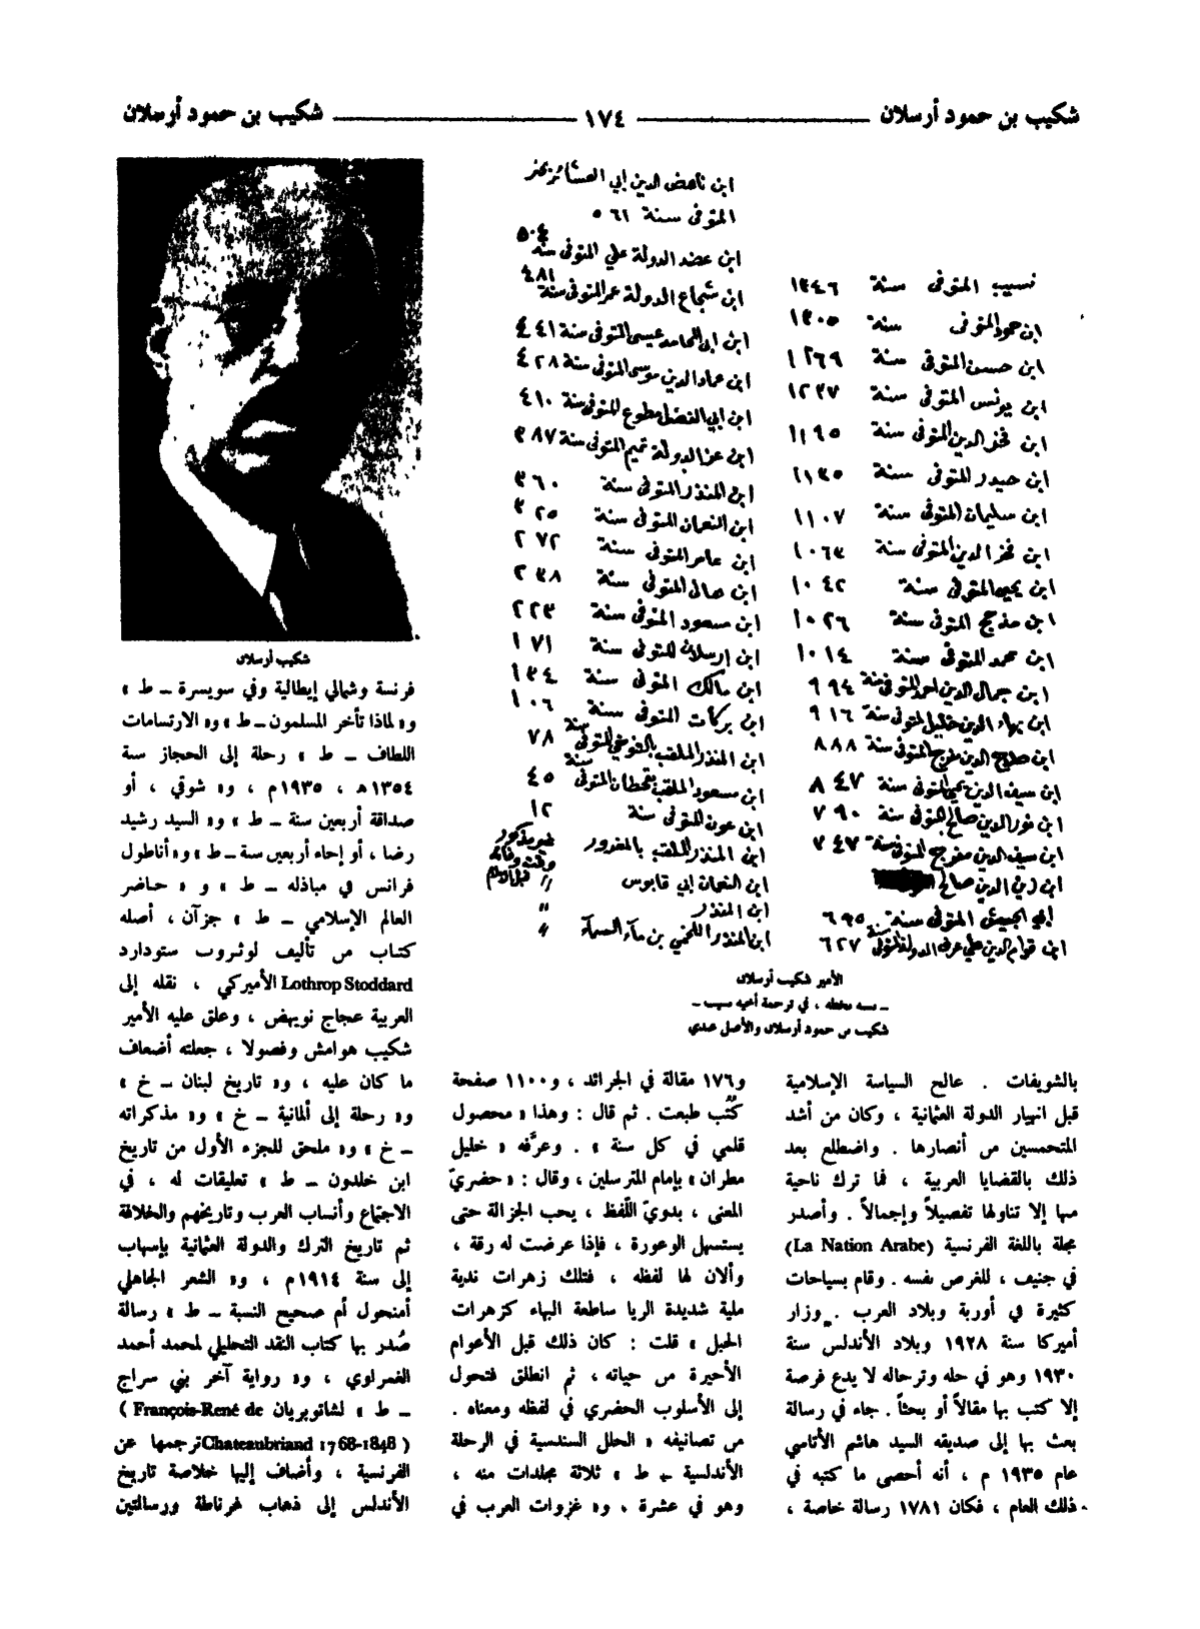 شكيب بن حمود أرسلان
١٧٤
شكيب بن حمود أرسلان
نسيب المتوفى سنة ١٣٤٦
ابن حمود المتوفى سنة ١٣٠٥
ابن حسن المتوفى سنة ١٢٦٩
ابن يونس المتوفى سنة ١٢٣٧
ابن فخر الدين المتوفى سنة ١١٩٥
ابن حيدر المتوفى سنة ١١٣٥
ابن سليمان المتوفى سنة ١١٠٧
ابن فخر الدين المتوفى سنة ١٠٦٣
ابن يحيى المتوفى سنة ١٠٤٢
ابن مذحج المتوفى سنة ١٠٢٦
ابن محمد المتوفى سنة ١٠١٤
ابن جمال الدين احمد المتوفى سنة ٩٩٤
ابن بهاء الدين خليل المتوفى سنة ٩١٦
ابن صلاح الدين مفرج المتوفى سنة ٨٨٨
ابن سيف الدين يحيى المتوفى سنة ٨٤٧
ابن نور الدين صالح المتوفى سنة ٧٩٠
ابن سيف الدين مفرج المتوفى سنة ٧٤٧
ابن زين الدين صالح
ابي الجيش المتوفى سنة ٦٩٥
ابن قوام الدين علي عرف الدولة المتوفى سنة ٦٢٧
ابن ناهض الدين ابي العشائر بحتر
المتوفى سنة ٥٦١
ابن عضد الدولة علي المتوفى سنة ٥٠٤
ابن شجاع الدولة عمر المتوفى سنة ٤٨١
ابن ابي المحامد عيسى المتوفى سنة ٤٤١
ابن عماد الدين موسى المتوفى سنة ٤٢٨
ابن ابي الفضل مطوع المتوفى سنة ٤١٠
ابن عز الدولة تميم المتوفى سنة ٣٨٧
ابن المنذر المتوفى سنة ٣٦٠
ابن النعمان المتوفى سنة ٣٢٥
ابن عامر المتوفى سنة ٢٧٢
ابن هاني المتوفى سنة ٢٣٨
ابن مسعود المتوفى سنة ٢٢٣
ابن ارسلان المتوفى سنة ١٧١
ابن مالك المتوفى سنة ١٣٤
ابن بركات المتوفى سنة ١٠٦
ابن المنذر الملقب بالتنوخي المتوفى سنة ٧٨
ابن مسعود الملقب بقحطان المتوفى سنة ٤٥
ابن عون المتوفى سنة ١٢
ابن المنذر الملقب بالمغرور غير مذكور وقت وفاته
ابن النعمان ابي قابوس " قبل الاسلام
ابن المنذر "
ابن المنذر اللخمي بن ماء السماء "
الأمير شكيب أرسلان
ـ نسبه بخطه ، في ترجمة أخيه نسيب ـ
شكيب بن حمود أرسلان والأصل عندي
بالشويفات . عالج السياسة الإسلامية
قبل انهيار الدولة العثمانية ، وكان من أشد
المتحمسين من أنصارها . واضطلع بعد
ذلك بالقضايا العربية ، فما ترك ناحية
منها إلا تناولها تفصيلاً وإجمالاً . وأصدر
مجلة باللغة الفرنسية (La Nation Arabe)
في جنيف ، للغرض نفسه . وقام بسياحات
كثيرة في أوربة وبلاد العرب . وزار
أميركا سنة ١٩٢٨ وبلاد الأندلس سنة
١٩٣٠ وهو في حله وترحاله لا يدع فرصة
إلا كتب بها مقالاً أو بحثاً . جاء في رسالة
بعث بها إلى صديقه السيد هاشم الأتاسي
عام ١٩٣٥ م ، أنه أحصى ما كتبه في
ذلك العام ، فكان ١٧٨١ رسالة خاصة ،
و١٧٦ مقالة في الجرائد ، و١١٠٠ صفحة
كُتب طبعت . ثم قال : وهذا « محصول
قلمي في كل سنة » . وعرَّفه « خليل
مطران » بإمام المترسلين ، وقال : « حضريّ
المعنى ، بدويّ اللفظ ، يحب الجزالة حتى
يستسهل الوعورة ، فإذا عرضت له رقة ،
وألان لها لفظه ، فتلك زهرات ندية
ملية شديدة الريا ساطعة البهاء كزهرات
الجبل » قلت : كان ذلك قبل الأعوام
الأخيرة من حياته ، ثم انطلق فتحول
إلى الأسلوب الحضري في لفظه ومعناه .
من تصانيفه « الحلل السندسية في الرحلة
الأندلسية ـ ط » ثلاثة مجلدات منه ،
وهو في عشرة ، و« غزوات العرب في
شكيب أرسلان
فرنسة وشمالي إيطالية وفي سويسرة ـ ط »
و« لماذا تأخر المسلمون ـ ط » و« الارتسامات
اللطاف ـ ط » رحلة إلى الحجاز سنة
١٣٥٤ هـ ، ١٩٣٥م ، و« شوقي ، أو
صداقة أربعين سنة ـ ط » و« السيد رشيد
رضا ، أو إخاء أربعين سنة ـ ط » و« أناطول
فرانس في مباذله ـ ط » و « حاضر
العالم الإسلامي ـ ط » جزآن ، أصله
كتاب من تأليف لوثروب ستودارد
Lothrop Stoddard الأميركي ، نقله إلى
العربية عجاج نويهض ، وعلق عليه الأمير
شكيب هوامش وفصولا ، جعلته أضعاف
ما كان عليه ، و« تاريخ لبنان ـ خ »
و« رحلة إلى ألمانية ـ خ » و« مذكراته
ـ خ » و« ملحق للجزء الأول من تاريخ
ابن خلدون ـ ط » تعليقات له ، في
الاجتماع وأنساب العرب وتاريخهم والخلافة
ثم تاريخ الترك والدولة العثمانية بإسهاب
إلى سنة ١٩١٤م ، و« الشعر الجاهلي
أمنحول أم صحيح النسبة ـ ط » رسالة
صُدر بها كتاب النقد التحليلي لمحمد أحمد
الغمراوي ، و« رواية آخر بني سراج
ـ ط » لشاتوبريان François-René de )
( Chateaubriand 1768-1848 ترجمها عن
الفرنسية ، وأضاف إليها خلاصة تاريخ
الأندلس إلى ذهاب غرناطة ورسالتين